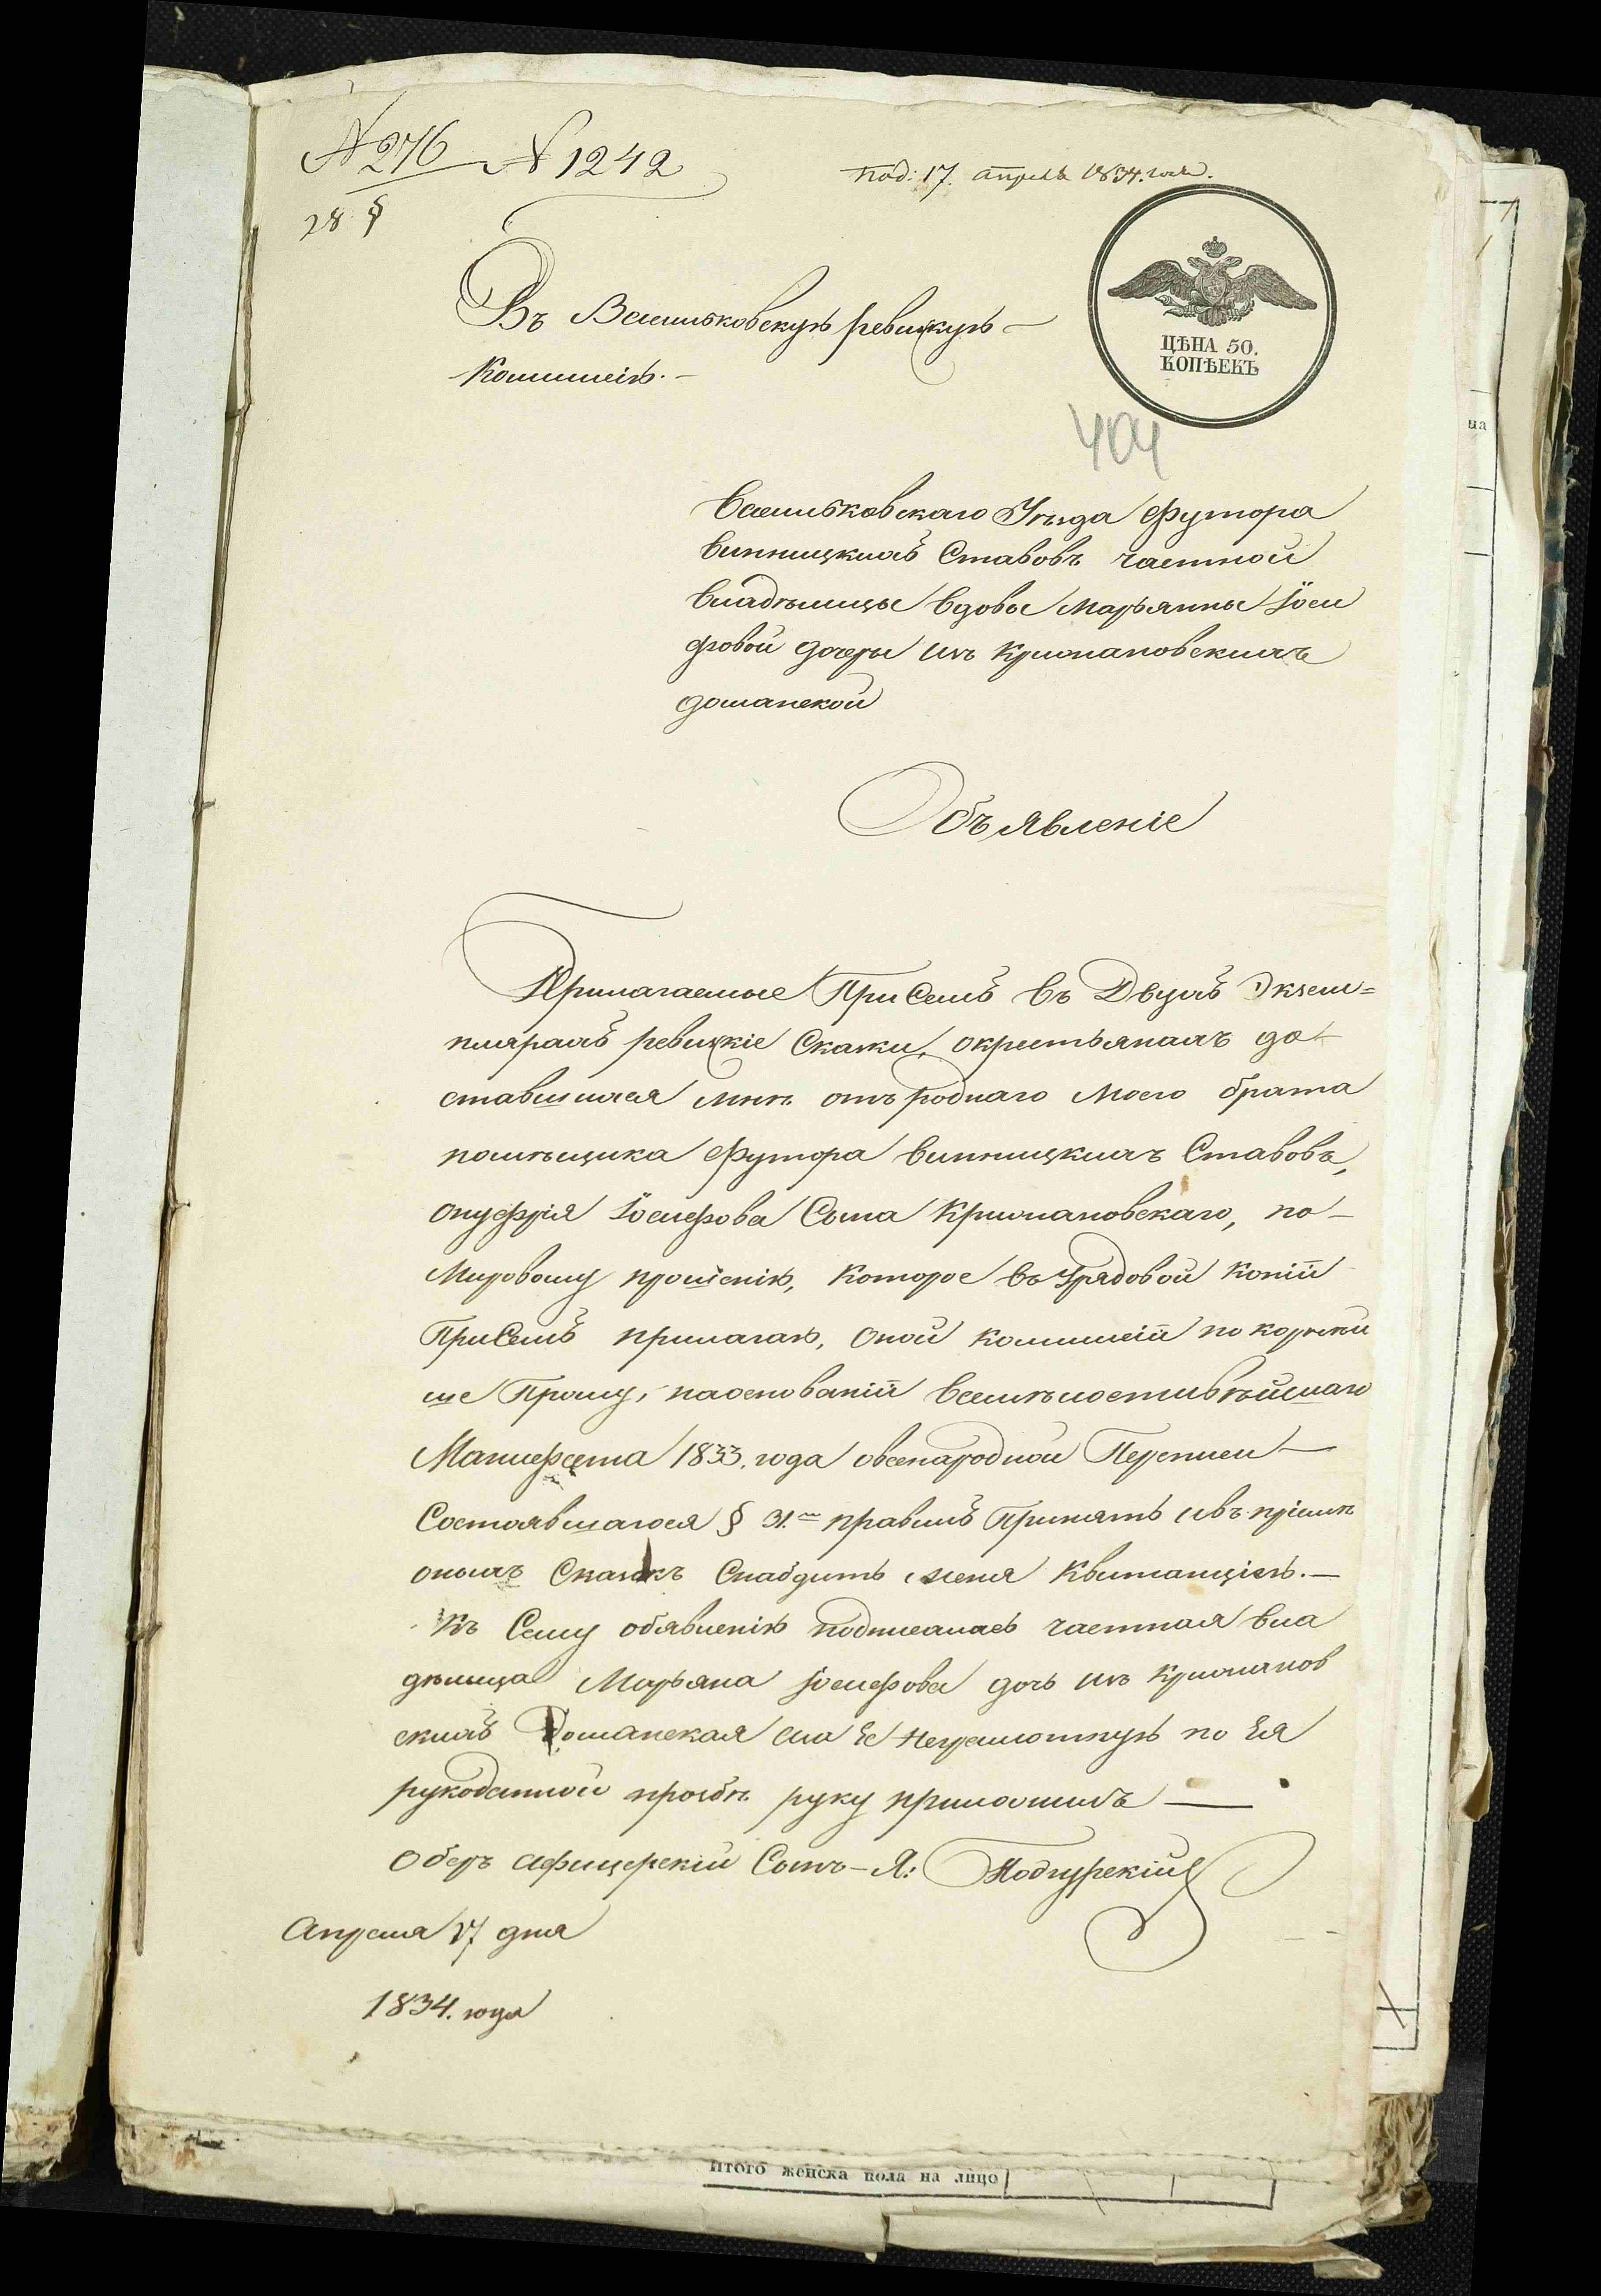 № 276 № 1242
28 §
под: 17. апреля 1834. года.
Въ Васильковскую ревизкую
Коммисію.
ЦѢНА 50.
КОПѢЕКЪ
404
Васильковскаго Уезда Футора
винницкихъ Ставовъ частной
владѣлицы вдовы Марьянны Іоси
фовой дочеры изъ Крижановскихъ
доманской
Объявленіе
Прилагаемые При Семъ въ Двухъ Экзем=
плярахъ ревизкіе Скажи, о крестьянахъ до
ставшихся мнѣ отъ роднаго Моего брата
помѣщика Футора винницкихъ Ставовъ,
онуфрія Іосифова Сына Крижановскаго, по
Мировому прошенію, которое въ Урядовой копіи
При Семъ прилагаю, оной коммисіи покорнѣй
ше Прошу, на основаніи Всемилостивѣйшаго
Манифеста 1833. года о всенародной Переписи
Состоявшагося § 31. правилъ Принять и въ пріемѣ
оныхъ Сказокъ Снабдить меня Квитанціею.
Къ Сему обявленію подписалась частная вла
дѣлица Марьяна Іосифова дочь изъ Крижанов
скихъ Доманская а за Ее Неграмотную по Ея
рукоданной прозбѣ руку приложилъ
Оберъ Афицерскій Сынъ Я: Подгурскій
Апреля 17 дня
1834. года
на
Итого женска пола на лицо